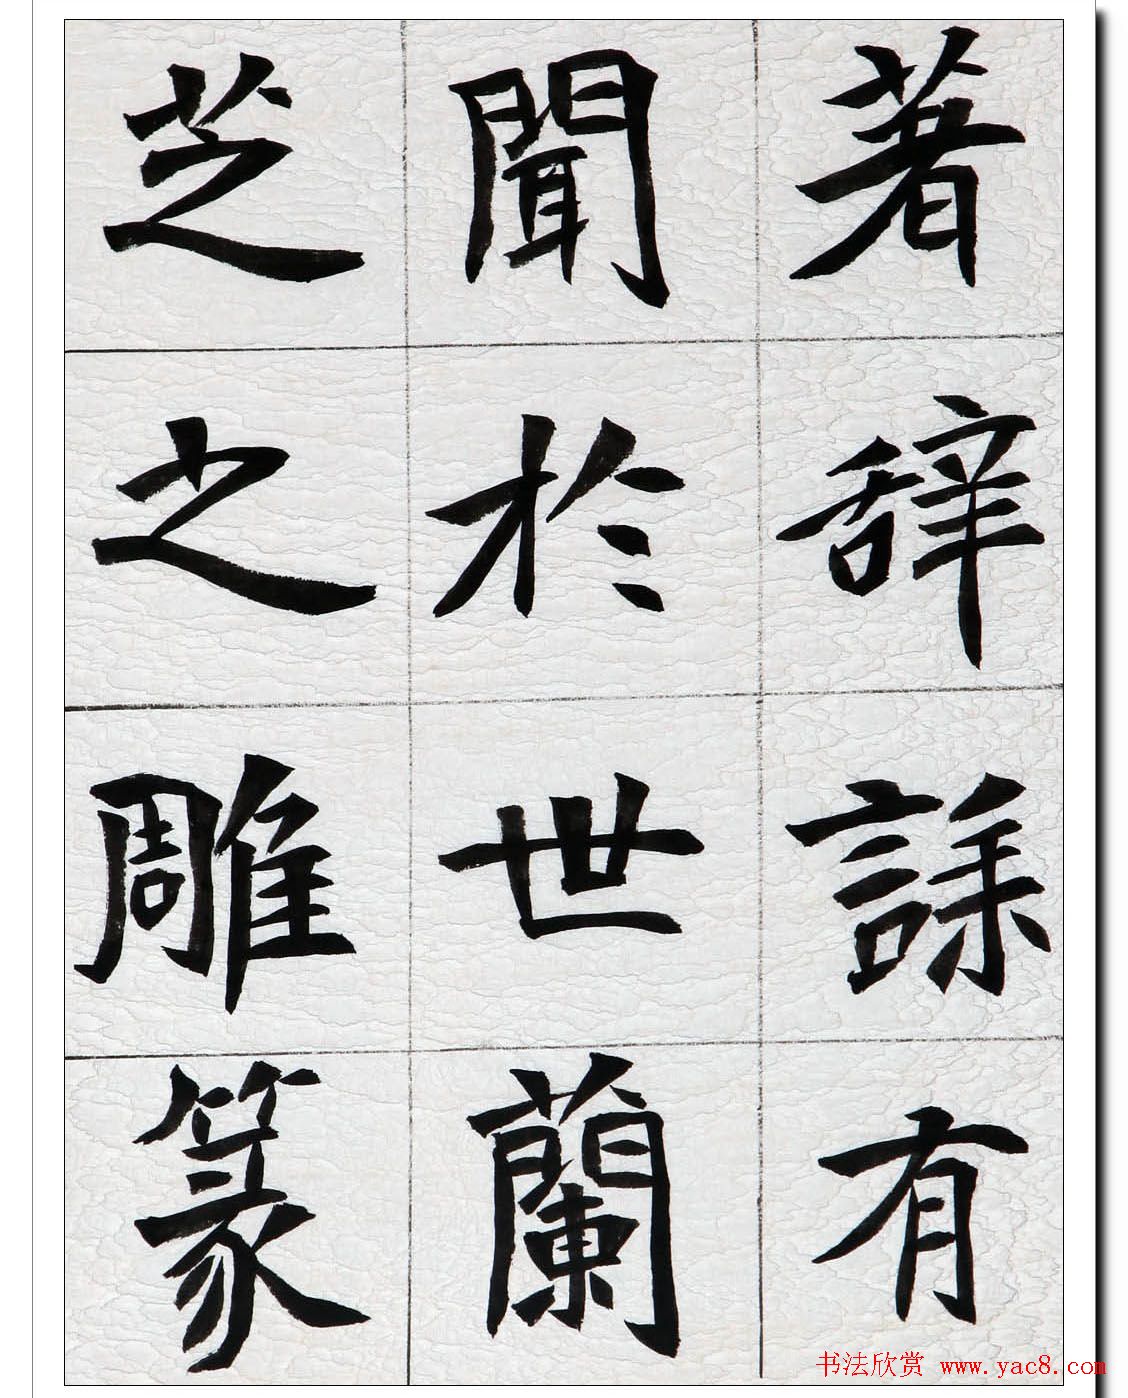 著辞誄有
聞於世蘭
芝之雕篆
书法欣赏 www.yac8.com